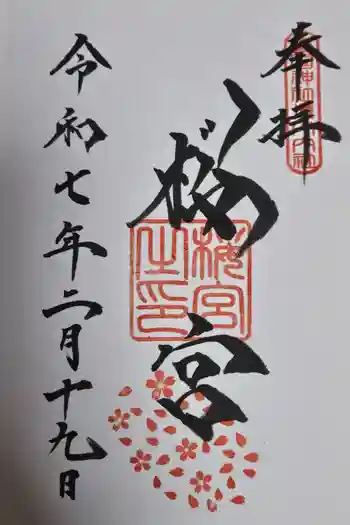 奉拝
桜宮
桜宮之印
令和七年二月十九日